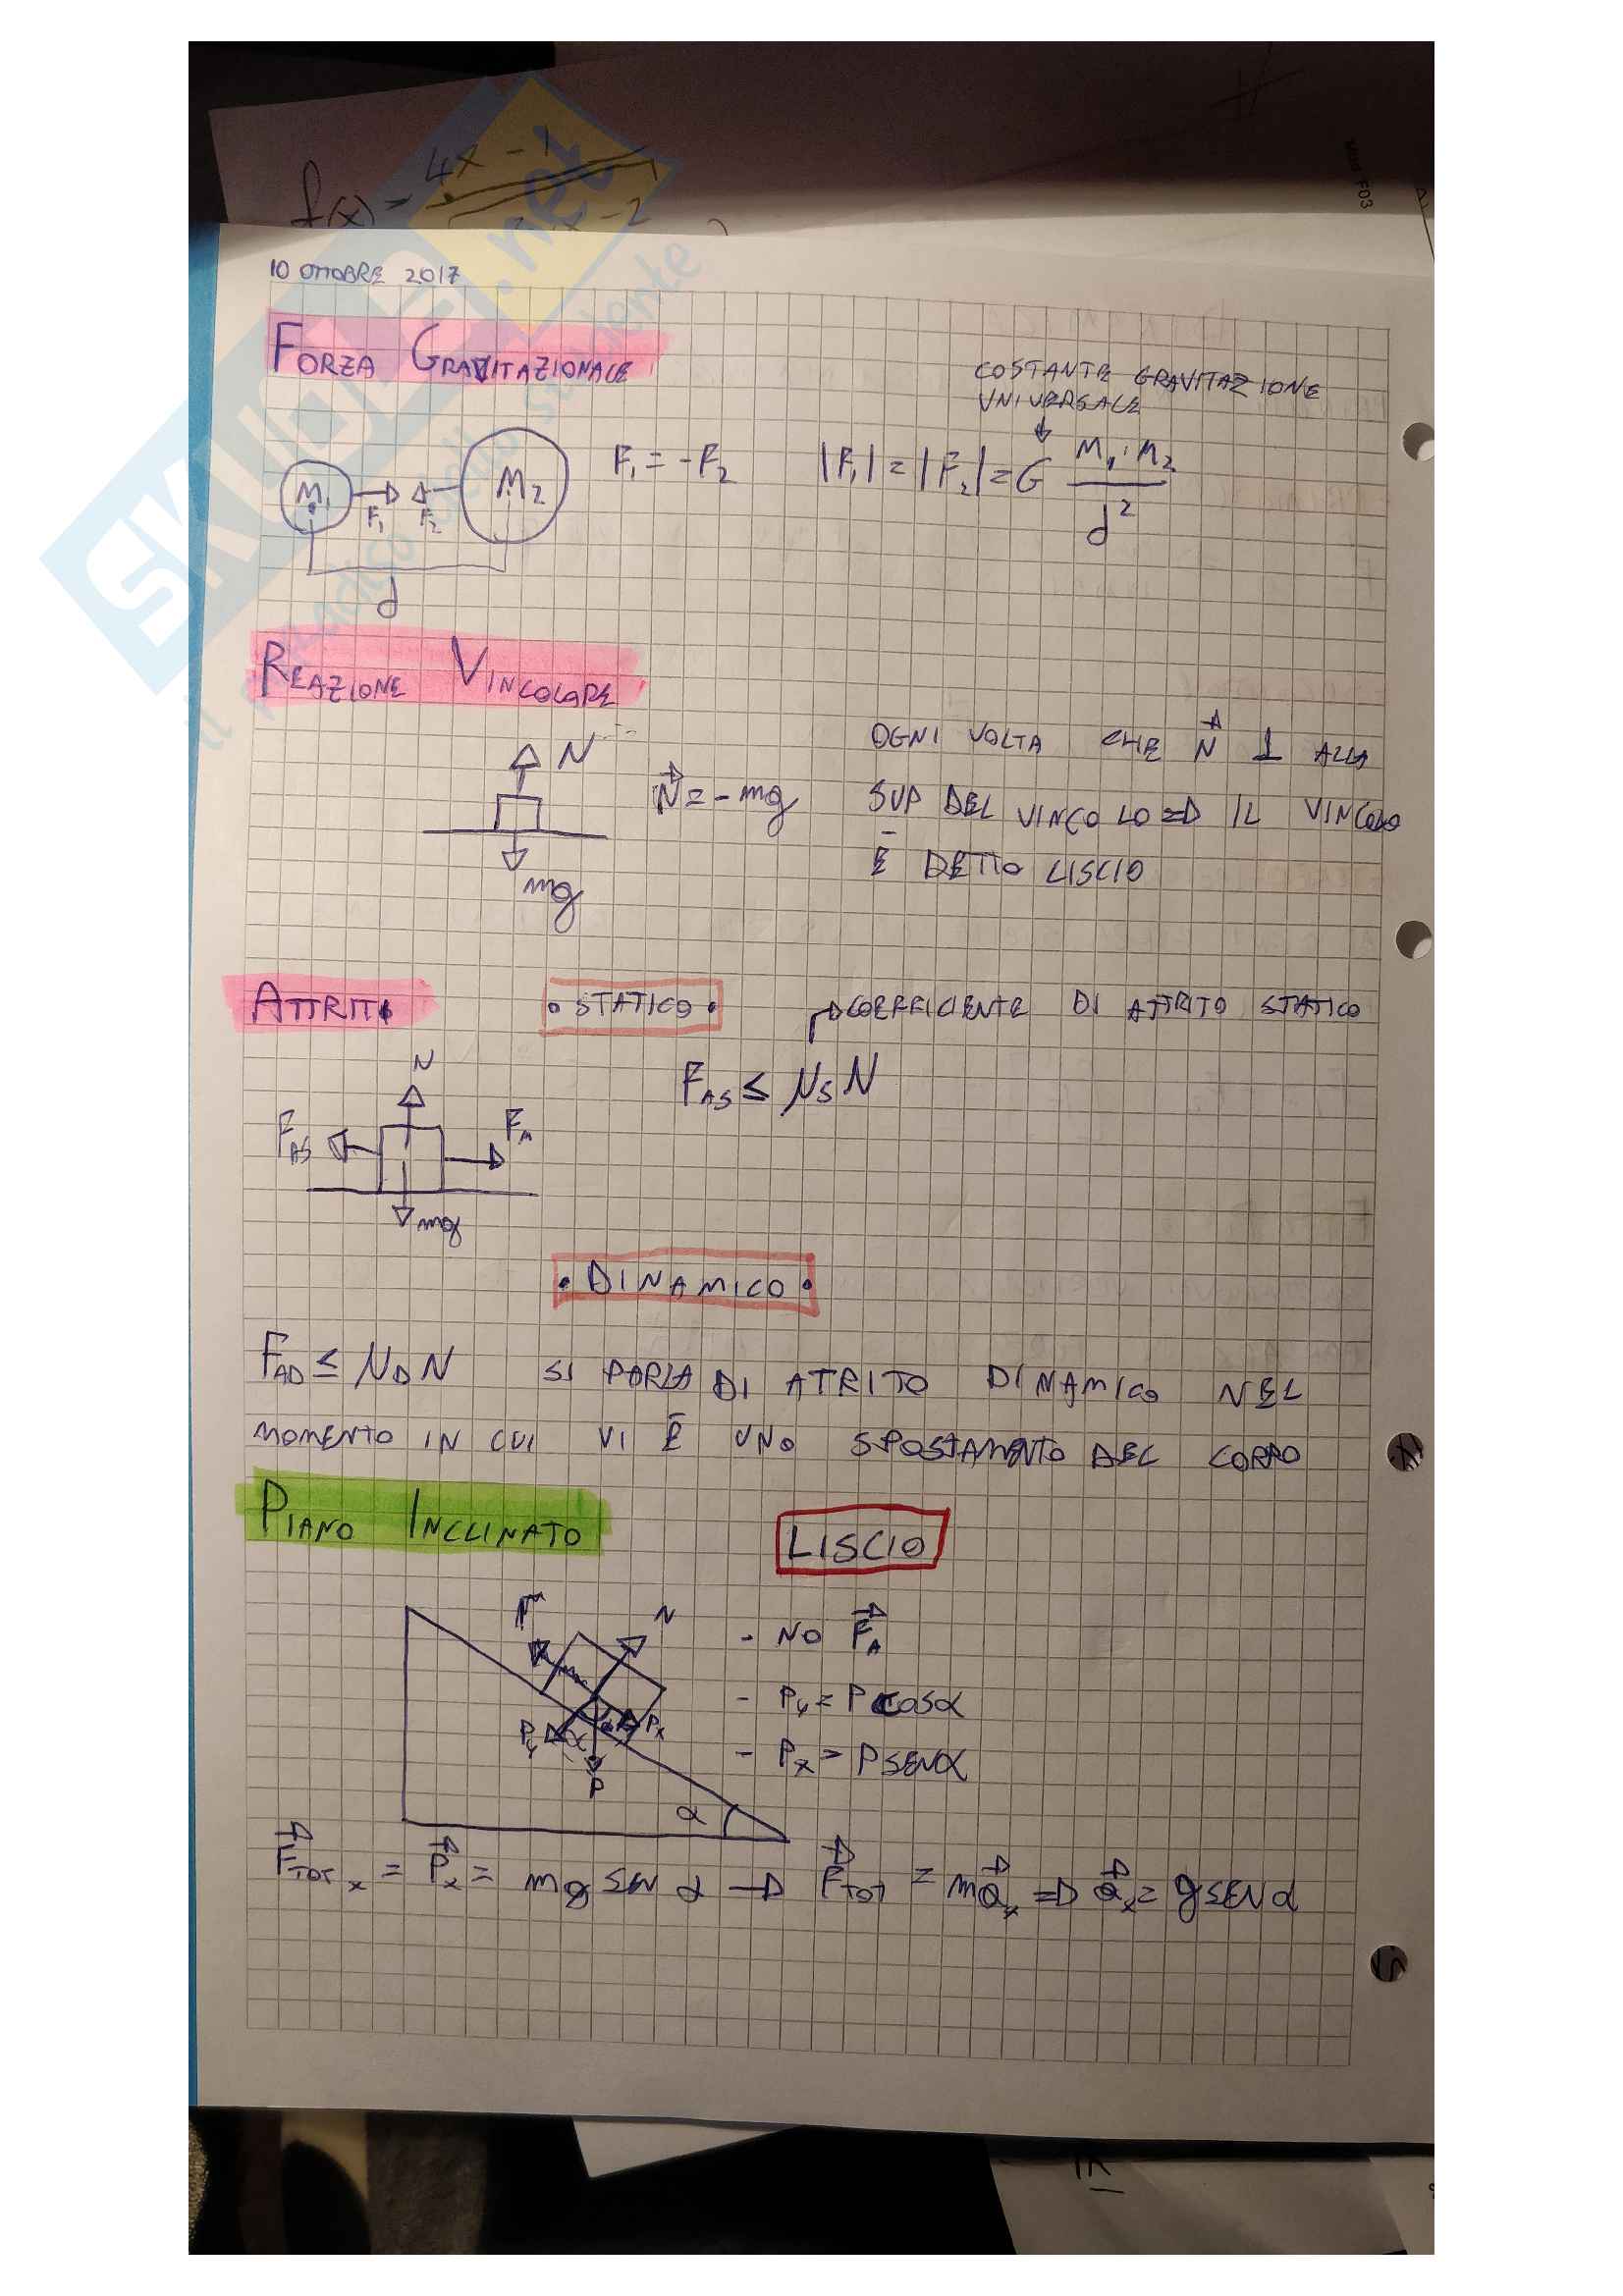 f(x) = 4x - 1
x - 2
Mod. F03
10 OTTOBRE 2017
FORZA GRAVITAZIONALE
COSTANTE GRAVITAZIONE
UNIVERSALE
M1 F1 F2 M2 d
F1 = -F2 |F1| = |F2| = G M1·M2 / d²
REAZIONE VINCOLARE
N
mg
N⃗ = - mg
OGNI VOLTA CHE N⃗ ⊥ ALLA
SUP DEL VINCOLO => IL VINCOLO
È DETTO LISCIO
ATTRITI
• STATICO •
COEFFICIENTE DI ATTRITO STATICO
F_AS ≤ μ_S N
N
F_AS F_A
mg
• DINAMICO •
F_AD ≤ μ_D N SI PARLA DI ATRITO DINAMICO NEL
MOMENTO IN CUI VI È UNO SPOSTAMENTO DEL CORPO
PIANO INCLINATO
LISCIO
N
Py α Px
P
α
- NO F⃗_A
- Py = P cosα
- Px = P SENα
F⃗_TOT x = P⃗x = mg SEN α → F⃗_TOT = m a⃗x => a⃗x = g SEN α
SKUOLA.net
il paradiso dello studente